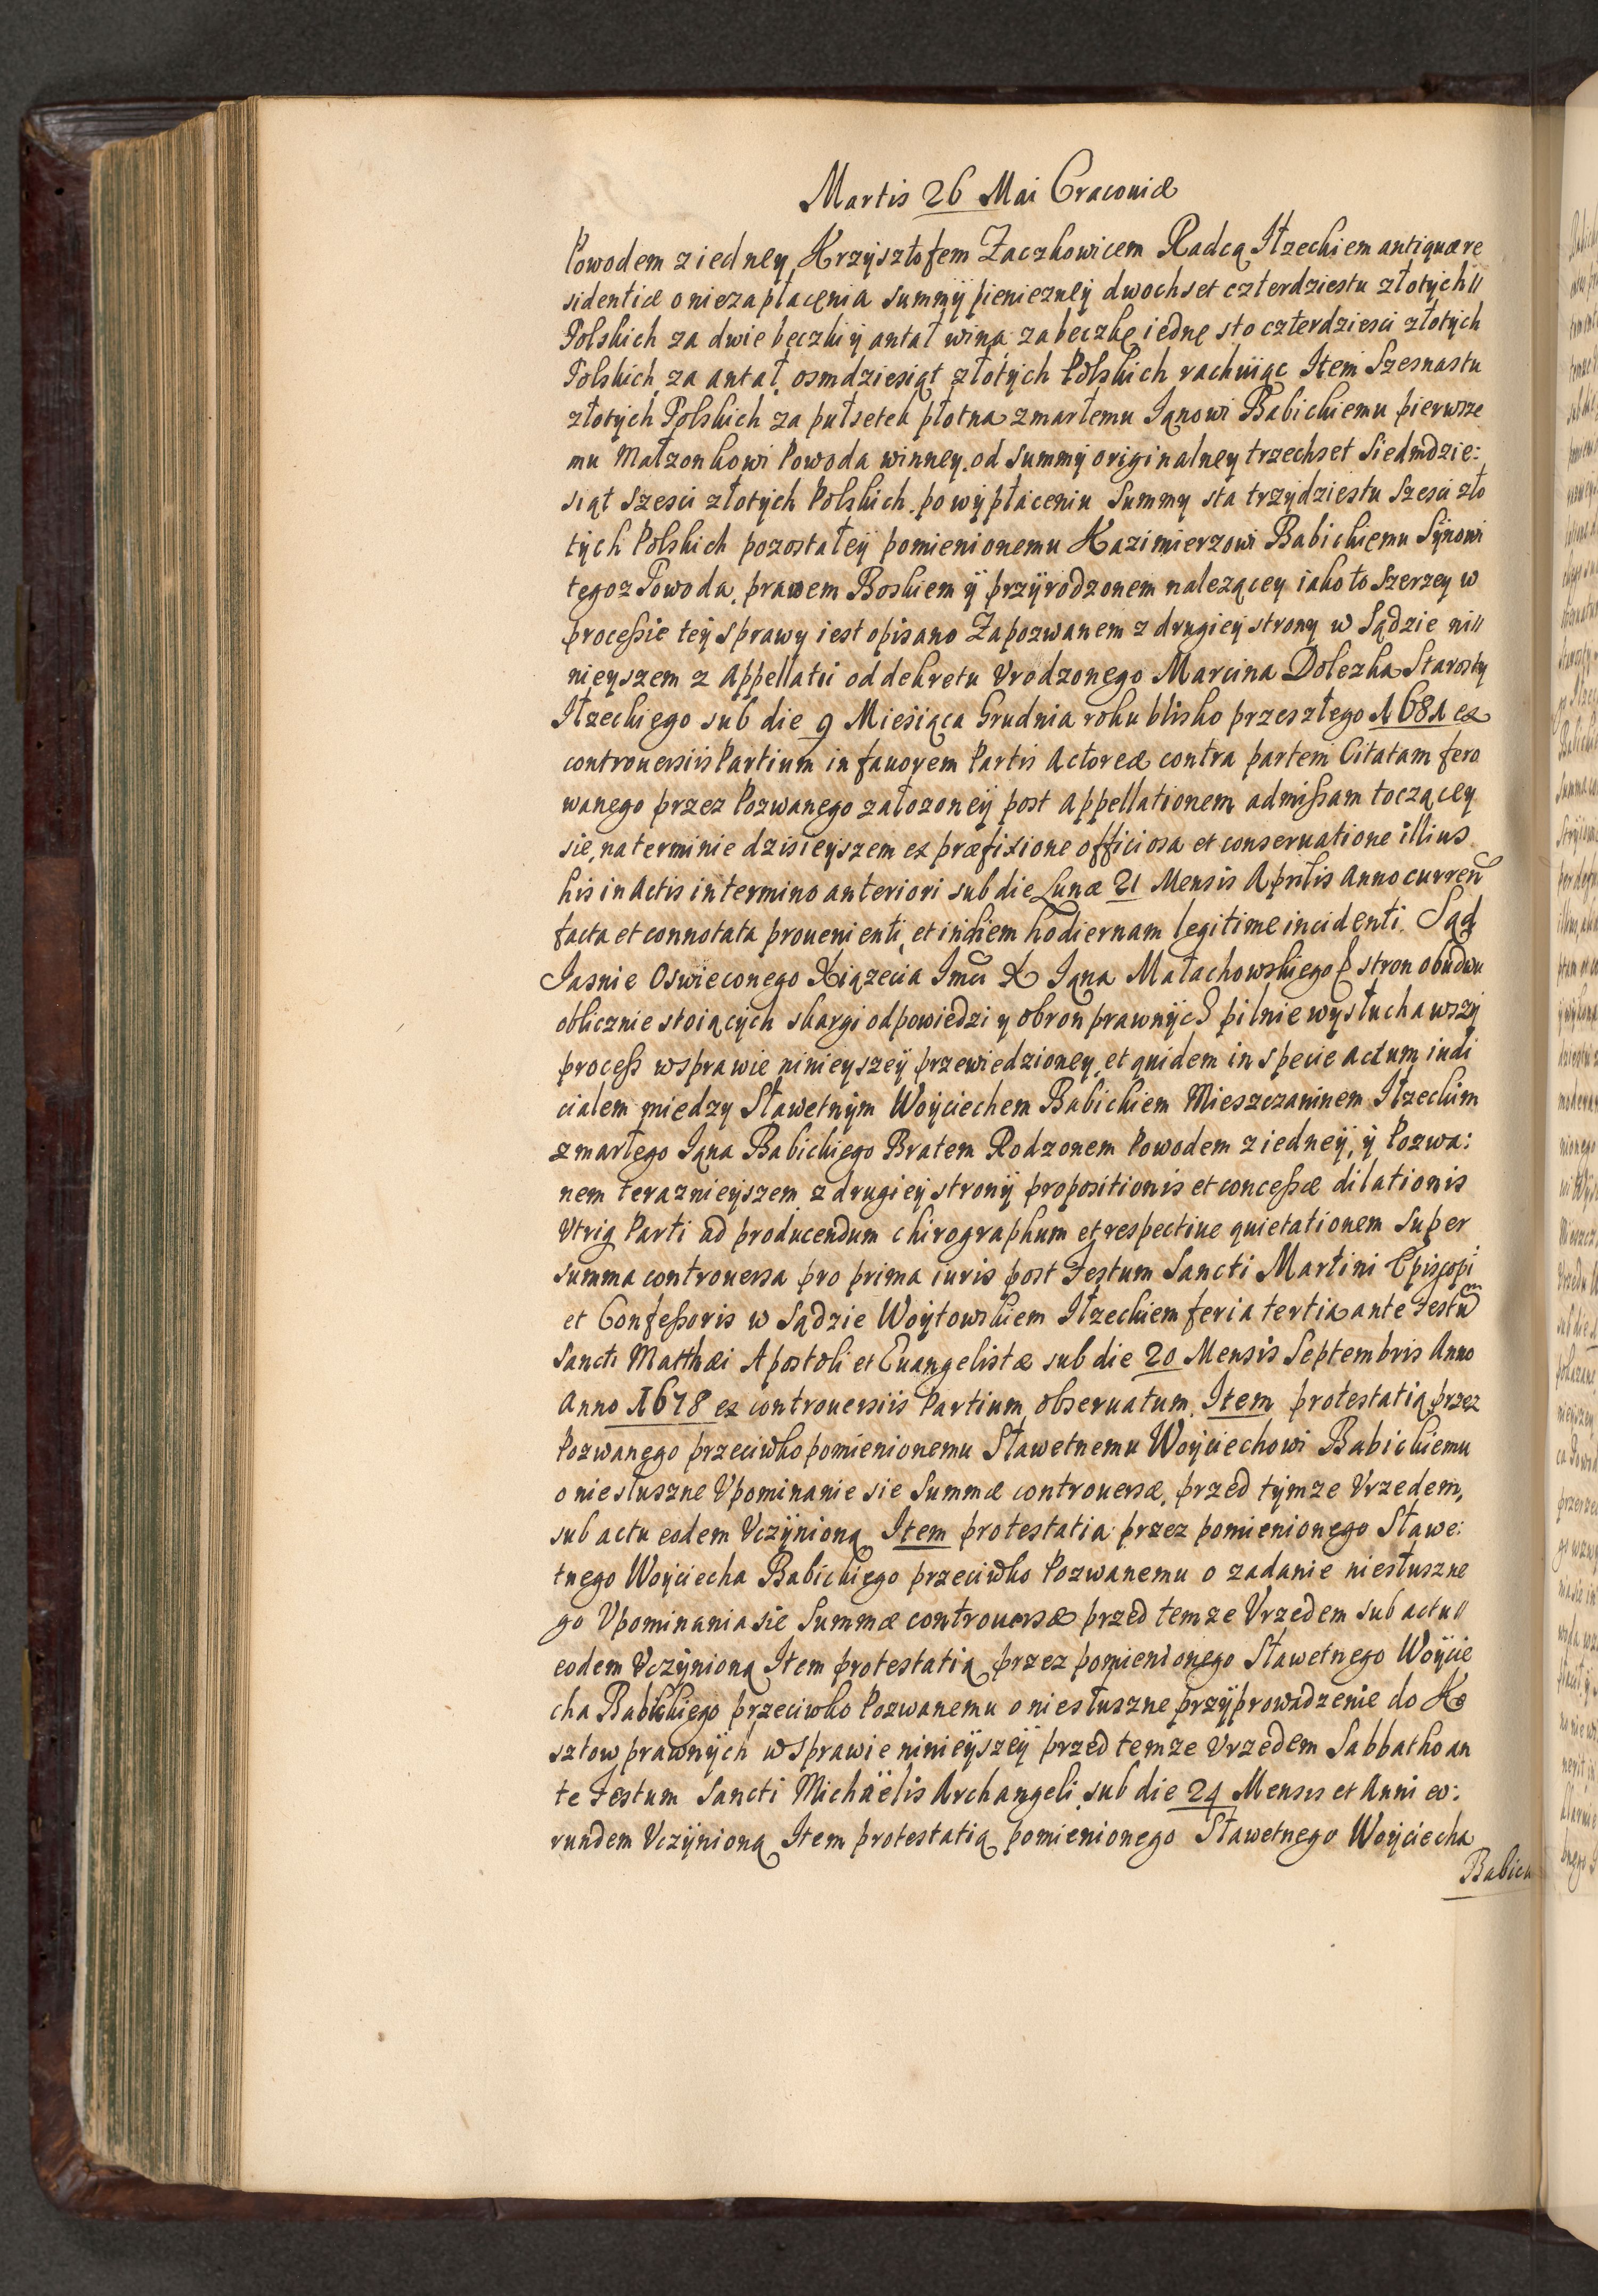 Martis 26 Mai Cracouiæ
Powodem z iedney Krzysztofem Zaczkowicem Radcą Iłzeckiem antiquæ re
sidentiæ o niezapłacęnia summÿ pienięznÿ dwochset czterdziestu złotych //
Polskich za dwie beczki ÿ antał wina za beczkę iednę sto czterdziesci złotych
Polskich za antał osmdziesiąt złotych Polskich rachuiąc Item Szesnastu
złotych Polskich za pułsetek płotna zmarłemu Ianowi Babickiemu pierwsze
mu Małzonkowi Powoda winney od summy originalney trzechset Siedmdzie:
siąt szesci złotych Polskich po wypłaceniu Summy sta trzydziestu Szesci zło
tych Polskich pozostałeÿ pomienionemu Kazimierzowi Babickiemu Synowi
tegoz Powoda prawem Boskiem ÿ przÿrodzonem nalezącey iako to Szerzey w
proceßie teÿ sprawy iest opisano Zapozwanem z drugiey strony w Sądzie ni//
nieyszem z Appellatii od dekretu Vrodzonego Marcina Dolezka Starosty
Iłzeckiego sub die 9 Miesiąca Grudnia roku blisko przeszłego 1681 ex
controuersiis Partium in fauorem Partis Actoreæ contra partem Citatam fero
wanego przez Pozwanego załozoneÿ post appellationem admißam toczącey
sie, na terminie dzisieyszem ex præfixione officiosa et conseruatione illius
his in Actis in termino anteriori sub die Lunæ 21 Mensis Aprilis Anno curren
facta et connotata prouenienti, et in diem hodiernam legitime incidenti. Sąd
Iasnie Oswieconego Xiązecia Imci X Iana Małachowskiego stron obudwu
oblicznie stoiących skargi odpowiedzi y obron prawnÿch pilnie wysłuchawszy
proceß w sprawie ninieyszeÿ przewiedzioney et quidem in specie actum iudi
cialem miedzy Sławetnym Woÿciechem Babickiem Mieszczaninem Iłzeckim
zmarłego Iana Babickiego Bratem Rodzonem Powodem z iedneÿ, ÿ Pozwa:
nem terazniejszem z drugieÿ stronÿ propositionis et conceßæ dilationis
Vtriq Parti ad producendum chirographum et respectiue quietationem super
summa controuersa pro prima iuris post Festum Sancti Martini Episcopi
et Confeßoris w Sądzie Woÿtowskiem Iłzeckiem feria tertia ante Festum
Sancti Matthæi Apostoli et Euangelistæ sub die 20 Mensis Septembris Anno
Anno 1678 ex controuersiis Partium obseruatum. Item protestatią przez
Pozwanego przeciwko pomienionemu Sławetnemu Woÿciechowi Babickiemu
o niesłuszne Vpominanie sie Summæ controuersæ, przed tymze Vrzedem,
sub actu eodem Vczÿnioną Item protestatia przez pomienionego Sławe:
tnego Woÿciecha Babickiego przeciwko Pozwanemu o zadanie niesłuszne
go Vpominania sie Summæ controuersæ przed temze Vrzedem sub actu //
eodem Vczynioną Item protestatią przez pomienionego Sławetnego Woÿcie
cha Babickiego przeciwko Pozwanemu o niesłuszne przÿprowadzenie do Ko
sztow prawnÿch w sprawie ninieÿszeÿ przed temze Vrzedem Sabbatho an
te Festum Sancti Michaëlis Archangeli sub die 24 Mensis et Anni eo:
rundem Vczÿnioną Item protestatią pomienionego Sławetnego Woÿciecha